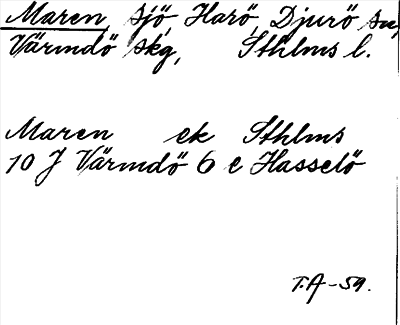 Maren, sjö, Harö, Djurö sn,
Värmdö skg, Sthlms l.
Maren ek Sthlms
10 J Värmdö 6 c Hasselö
T.A-59.